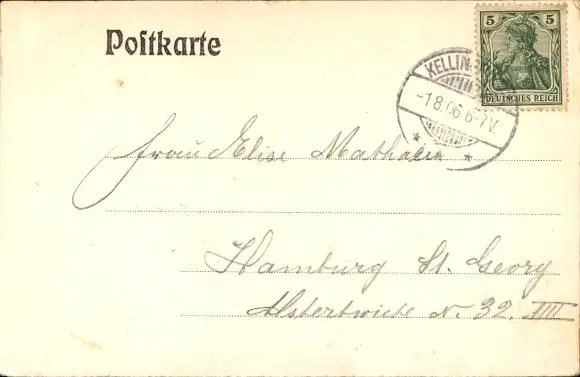 Postkarte
5 5
DEUTSCHES REICH
KELLIN
-1.8.06.6-7V.
Frau Elise Mathaei
Hamburg St. Georg
Alstertwiete N. 32. IIII